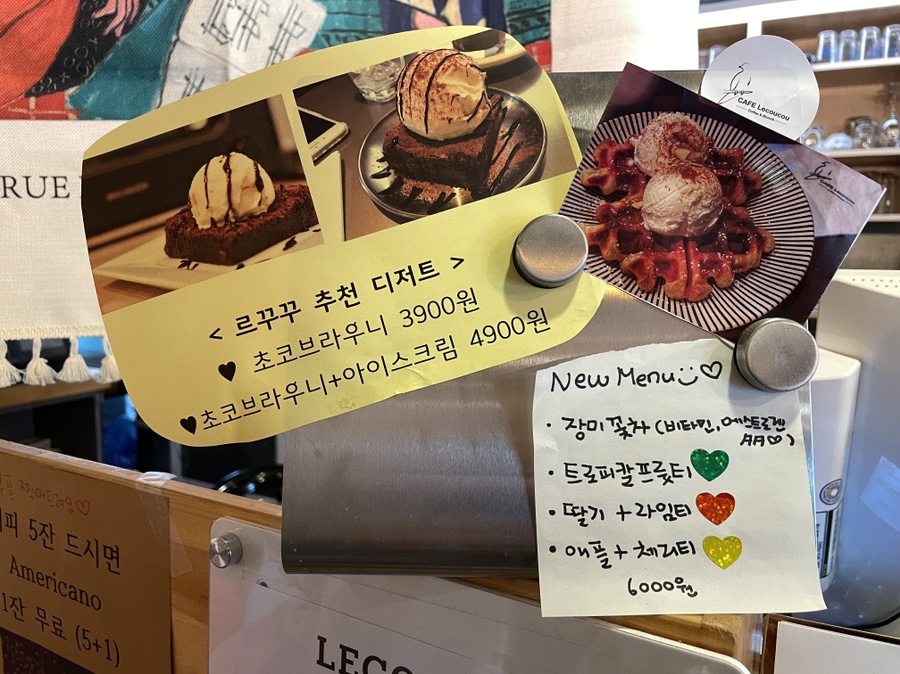 RUE
CAFE Lecoucou
Coffee & Brunch
CAFE Lecoucou
< 르꾸꾸 추천 디저트 >
♥ 초코브라우니 3900원
♥초코브라우니+아이스크림 4900원
New Menu ♡
· 장미꽃차 (비타민, 에스트로겐
· 트로피칼프룻티
· 딸기 + 라임티
· 애플 + 체리티
6000원
피 5잔 드시면
Americano
1잔 무료 (5+1)
LECO